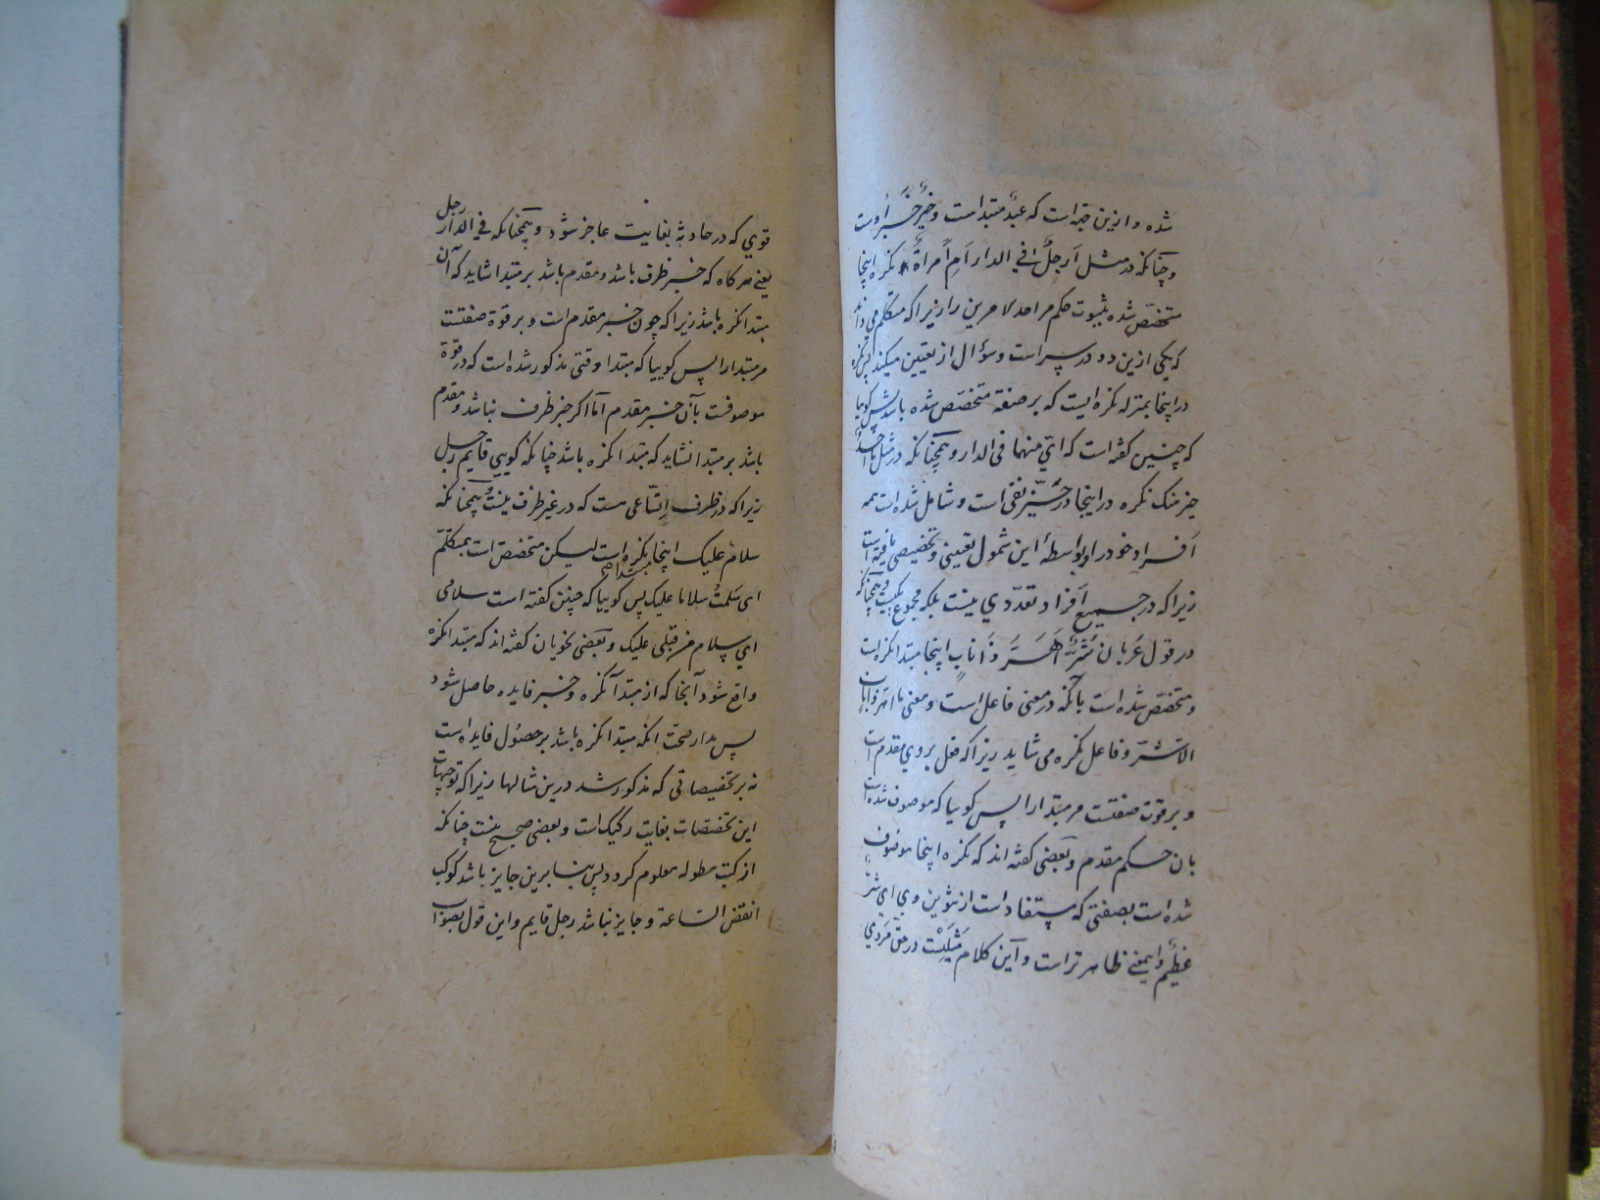 شده و ازین جهة است که عبدٌ مبتداست و خیرٌ خبر اوست
و چنانکه در مثل أرجلٌ فی الدار أم امرأةٌ نکره اینجا
متخصّص شده بثبوت حکم مر احد لامرین را زیرا که متکلم می داند
که یکی ازین دو در سراست و سؤال از تعیین میکند پس نکره
در اینجا بمنزله نکره ایست که بر صفة متخصّص شده باشد پس گویا
که چنین گفته است که ایّ منهما فی الدار و همچنانکه در مثل ما احدٌ
خیر منک نکره در اینجا در حیّز نفی است و شامل شده است همه
افراد خود را و بواسطهٔ این شمول تعینی و تخصیصی یافته است
زیرا که در جمیع افراد تعدّدی نیست بلکه مجموع یکیست و همچنانکه
در قول عربان شرٌّ أهرّ ذا نابٍ اینجا مبتدا نکره است
و متخصّص شده است بآنکه در معنی فاعل است و معنی ما اهرّ ذا ناب
الا شرّ و فاعل نکره می شاید زیرا که فعل بر وی مقدم است
و بر قوت صفتست مر مبتدا را پس گوییا که موصوف شده است
بآن حکم مقدم و بعضی گفته اند که نکره اینجا موصوف
شده است بصفتی که مستفاد است از تنوین وی ای شرٌّ
عظیم و اینمعنی ظاهرتر است و این کلام مثلیست در حق مردی
قوی که در حادثه بغایت عاجز شود و همچنانکه فی الدار رجل
یعنی هرگاه که خبر ظرف باشد و مقدم باشد بر مبتدا شاید که آن
مبتدا نکره باشد زیرا که چون خبر مقدم است و بر قوة صفتست
مر مبتدا را پس گوییا که مبتدا وقتی مذکور شده است که در قوة
موصوفست بآن خبر مقدم اما اگر خبر ظرف نباشد و مقدم
باشد بر مبتدا نشاید که مبتدا نکره باشد چنانکه گویی قایم رجل
زیرا که در ظرف اتّساعی هست که در غیر ظرف نیست و همچنانکه
سلامٌ علیک اینجا نکره است لیکن متخصّص است بمتکلّم
ای سلّمتُ سلاما علیک پس گوییا که چنین گفته است سلامی
ای سلام من قبلی علیک و بعضی نحویان گفته اند که مبتدا نکره
واقع شود آنجا که از مبتدا نکره و خبر فایده حاصل شود
پس مدار صحت آنکه مبتدا نکره باشد بر حصول فایده است
نه بر تخصیصاتی که مذکور شد درین مثالها زیرا که توجیهات
این تخصّصات بغایت رکیک است و بعضی صحیح نیست چنانکه
از کتب مطوله معلوم گردد پس بنا برین جایز باشد کوکب
انقض الساعة و جایز نباشد رجل قایم و این قول بصواب